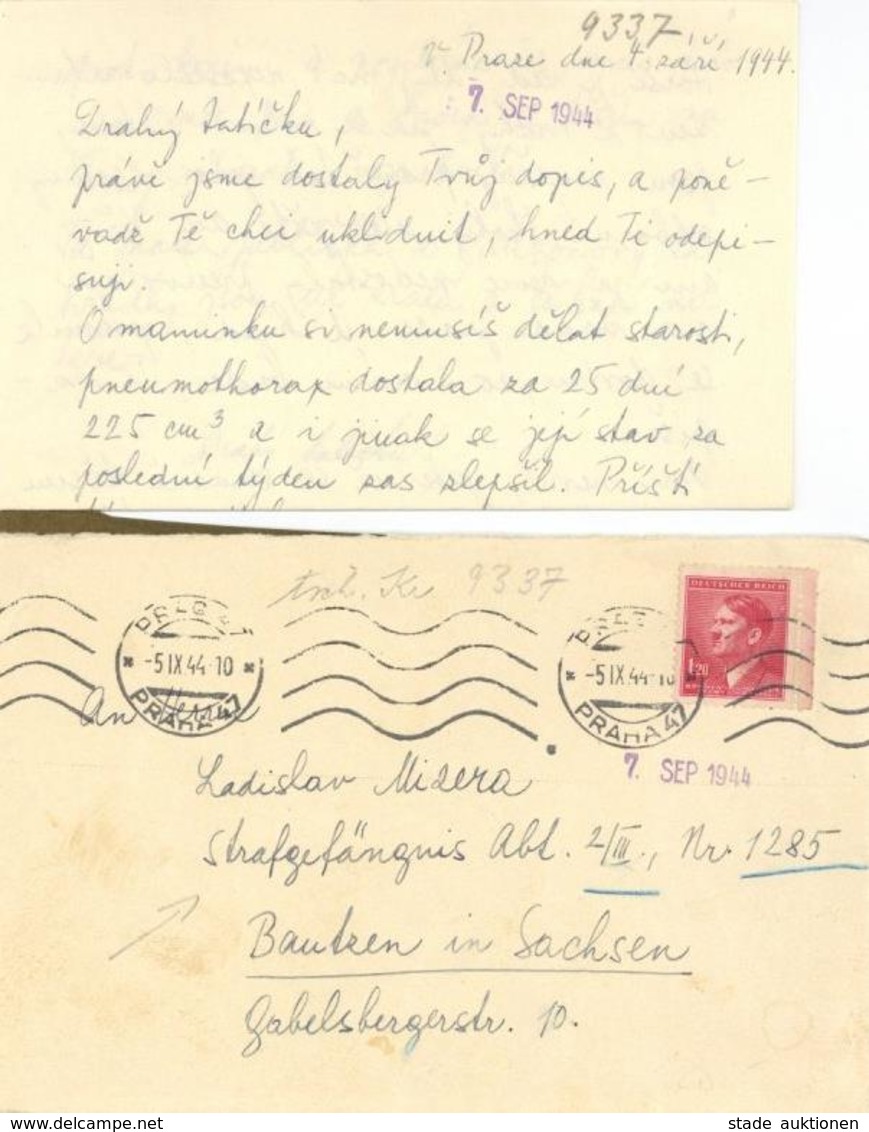 9337
V Praze dne 4. září 1944.
7. SEP 1944
Drahý tatíčku,
právě jsme dostaly Tvůj dopis, a poně-
vadž Tě chci uklidnit, hned Ti odepi-
suji.
O maminku si nemusíš dělat starosti,
pneumothorax dostala za 25 dní
225 cm³ a i jinak se její stav za
poslední týden zas zlepšil. Příští
tsch. Kr 9337
DEUTSCHES REICH
1.20
PRAG 47
-5 IX 44-10
PRAHA 47
PRAG 47
-5 IX 44-10
PRAHA 47
An Herrn
7. SEP 1944
Ladislav Mizera
Strafgefängnis Abt. 2/III., Nr. 1285
Bautzen in Sachsen
Gabelsbergerstr. 10.
stade auktionen